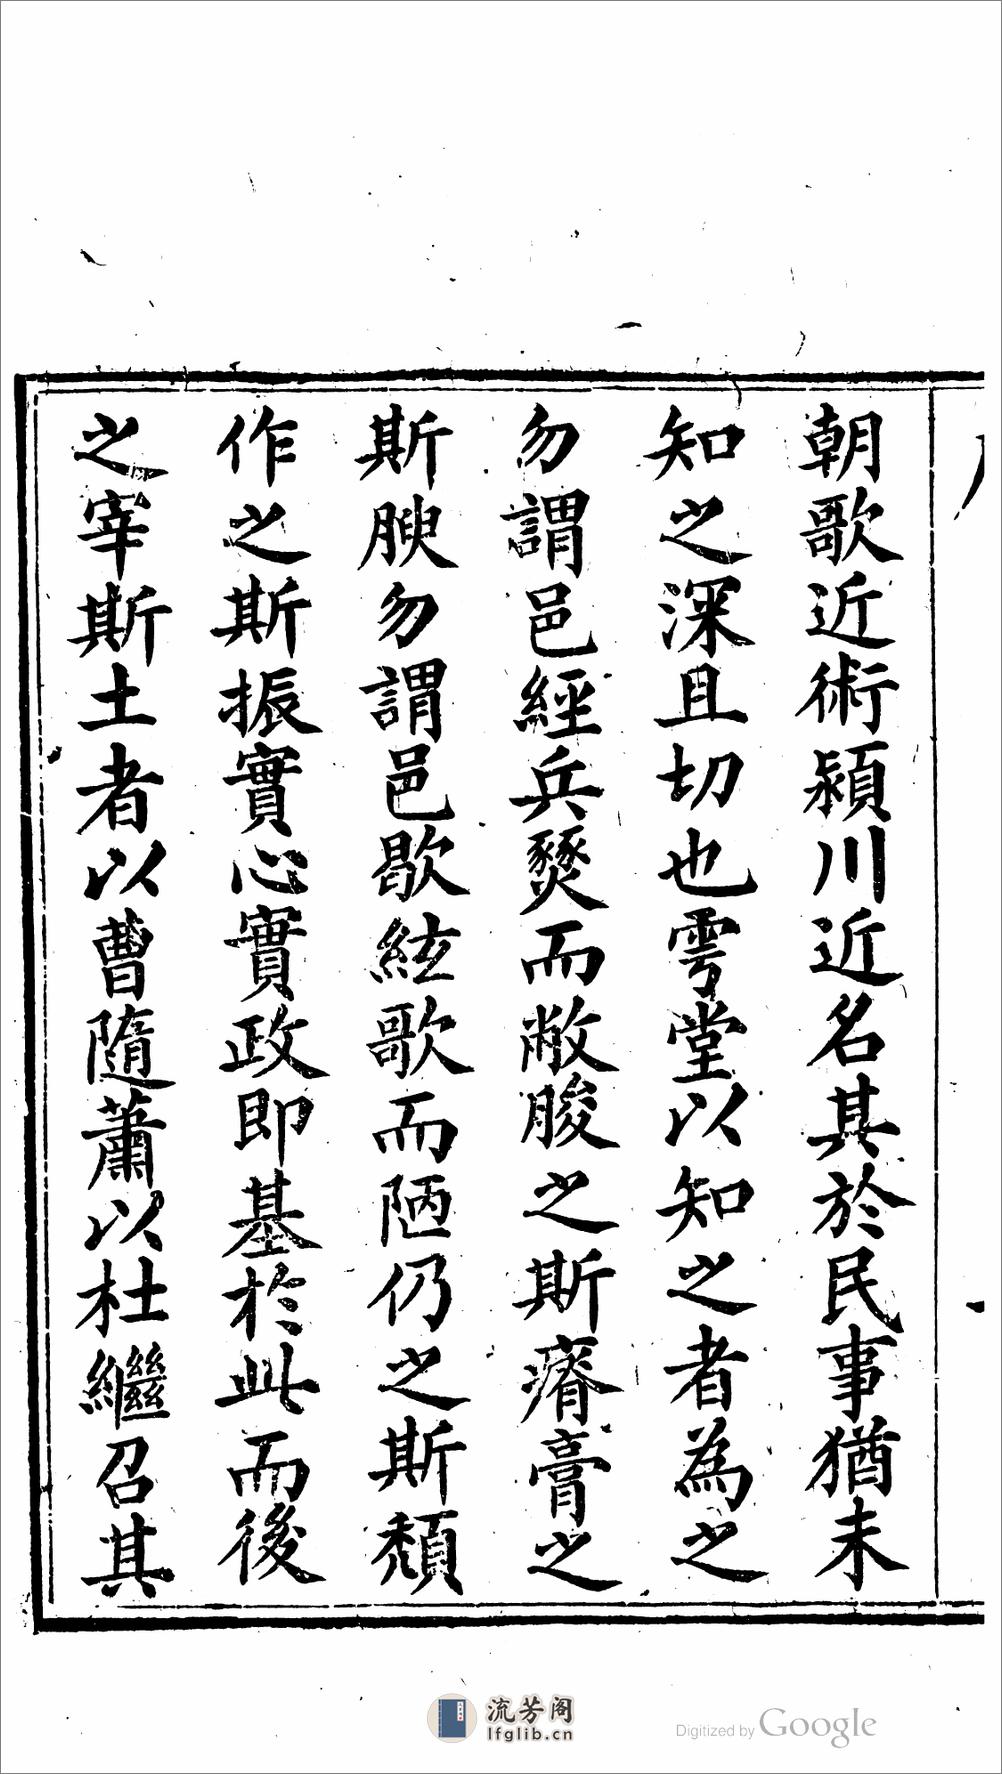 朝歌近術潁川近名其於民事猶未
知之深且切也雩堂以知之者為之
勿謂邑經兵燹而敝朘之斯瘠膏之
斯腴勿謂邑歇絃歌而陋仍之斯頹
作之斯振實心實政即基於此而後
之宰斯土者以曹隨蕭以杜繼召其
流芳阁
lfglib.cn
Digitized by Google